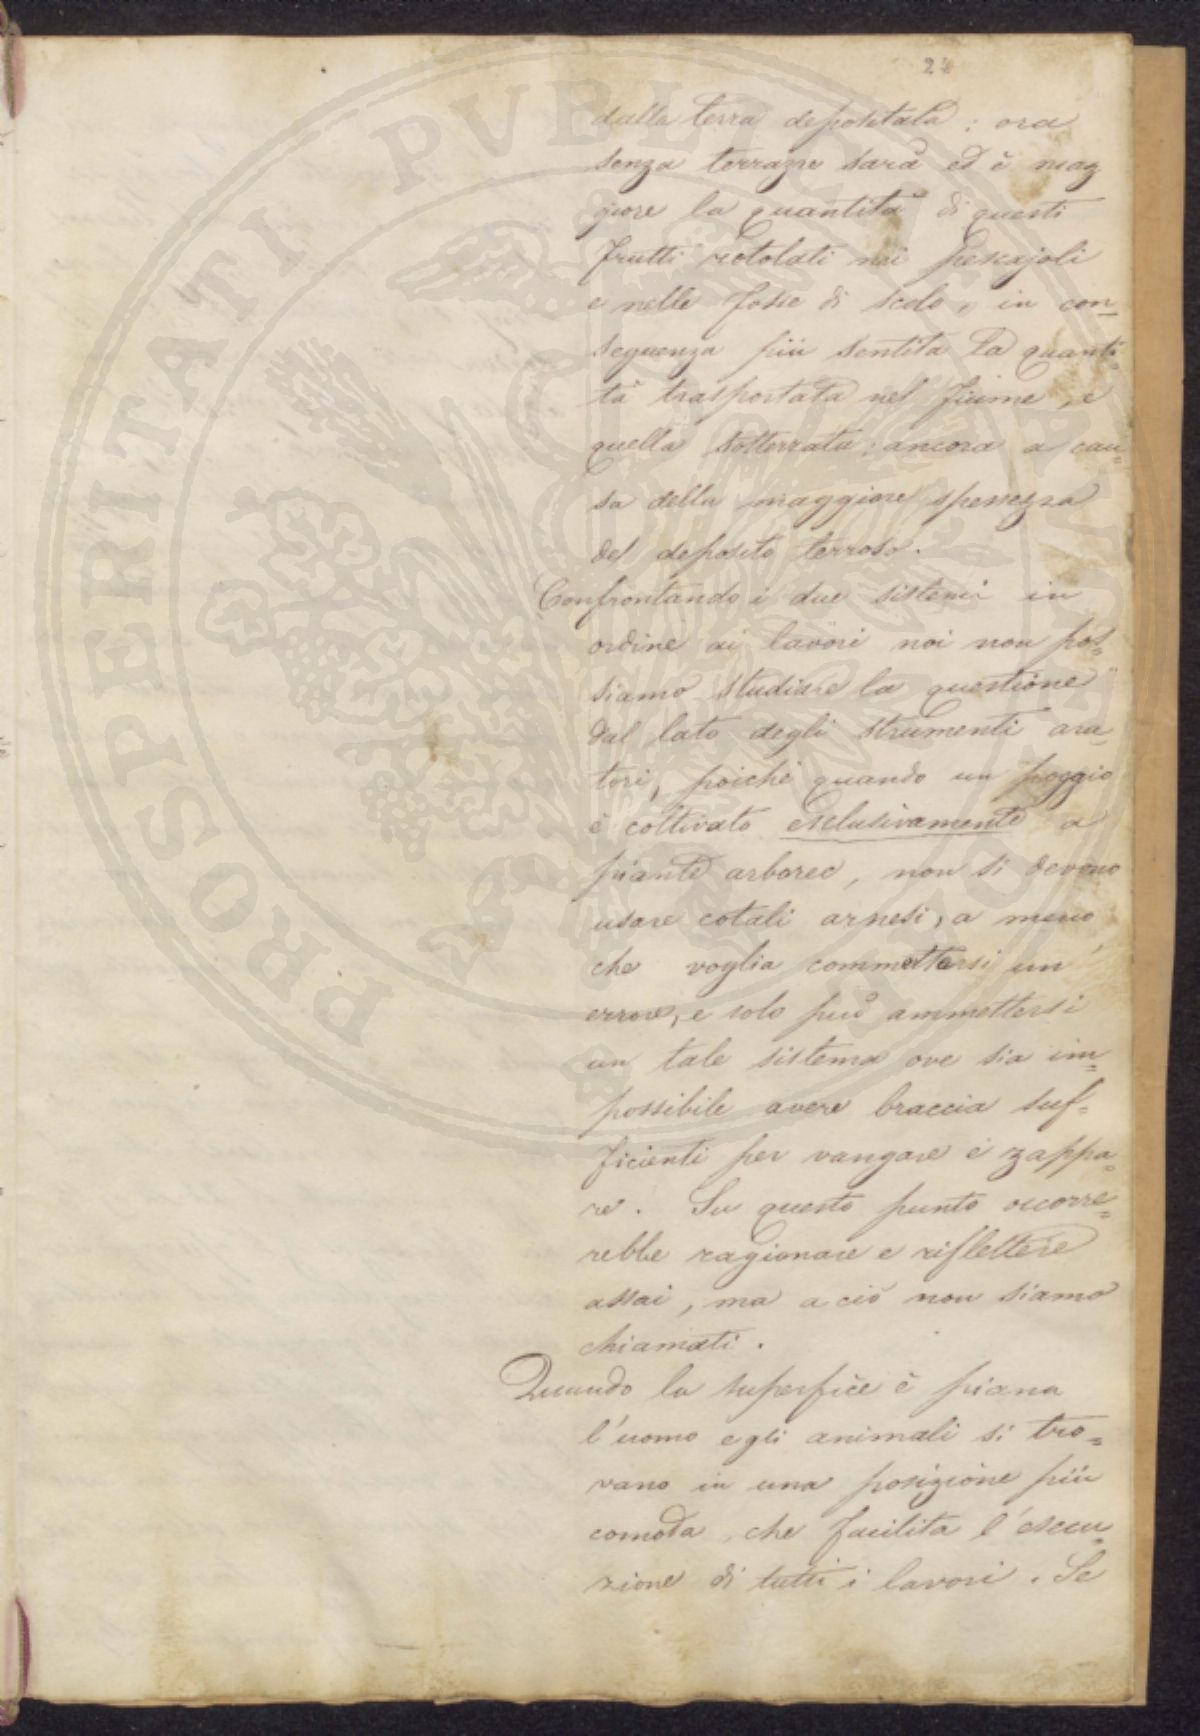 24
dalla terra depositata : ora
senza terrazze sarà ed è mag
giore la quantità di questi
frutti rotolati nei pescajoli
e nelle fosse di scolo, in con=
seguenza più sentita la quanti
tà trasportata nel fiume, e
quella sotterrata: ancora a cau=
sa della maggiore spessezza
del deposito terroso.
Confrontando i due sistemi in
ordine ai lavori noi non pos=
siamo studiare la questione
dal lato degli strumenti ara=
tori, poichè quando un poggio
è coltivato esclusivamente a
piante arboree, non si devono
usare cotali arnesi, a meno
che voglia commettersi un'
errore, e solo può ammettersi
un tale sistema ove sia im=
possibile avere braccia suf=
ficienti per vangare e zappa=
re. Su questo punto occorre=
rebbe ragionare e riflettere
assai, ma a ciò non siamo
chiamati.
Quando la superfice è piana
l'uomo e gli animali si tro=
vano in una posizione più
comoda, che facilita l'esecu=
zione di tutti i lavori. Se
PROSPERITATI PVBLICAE